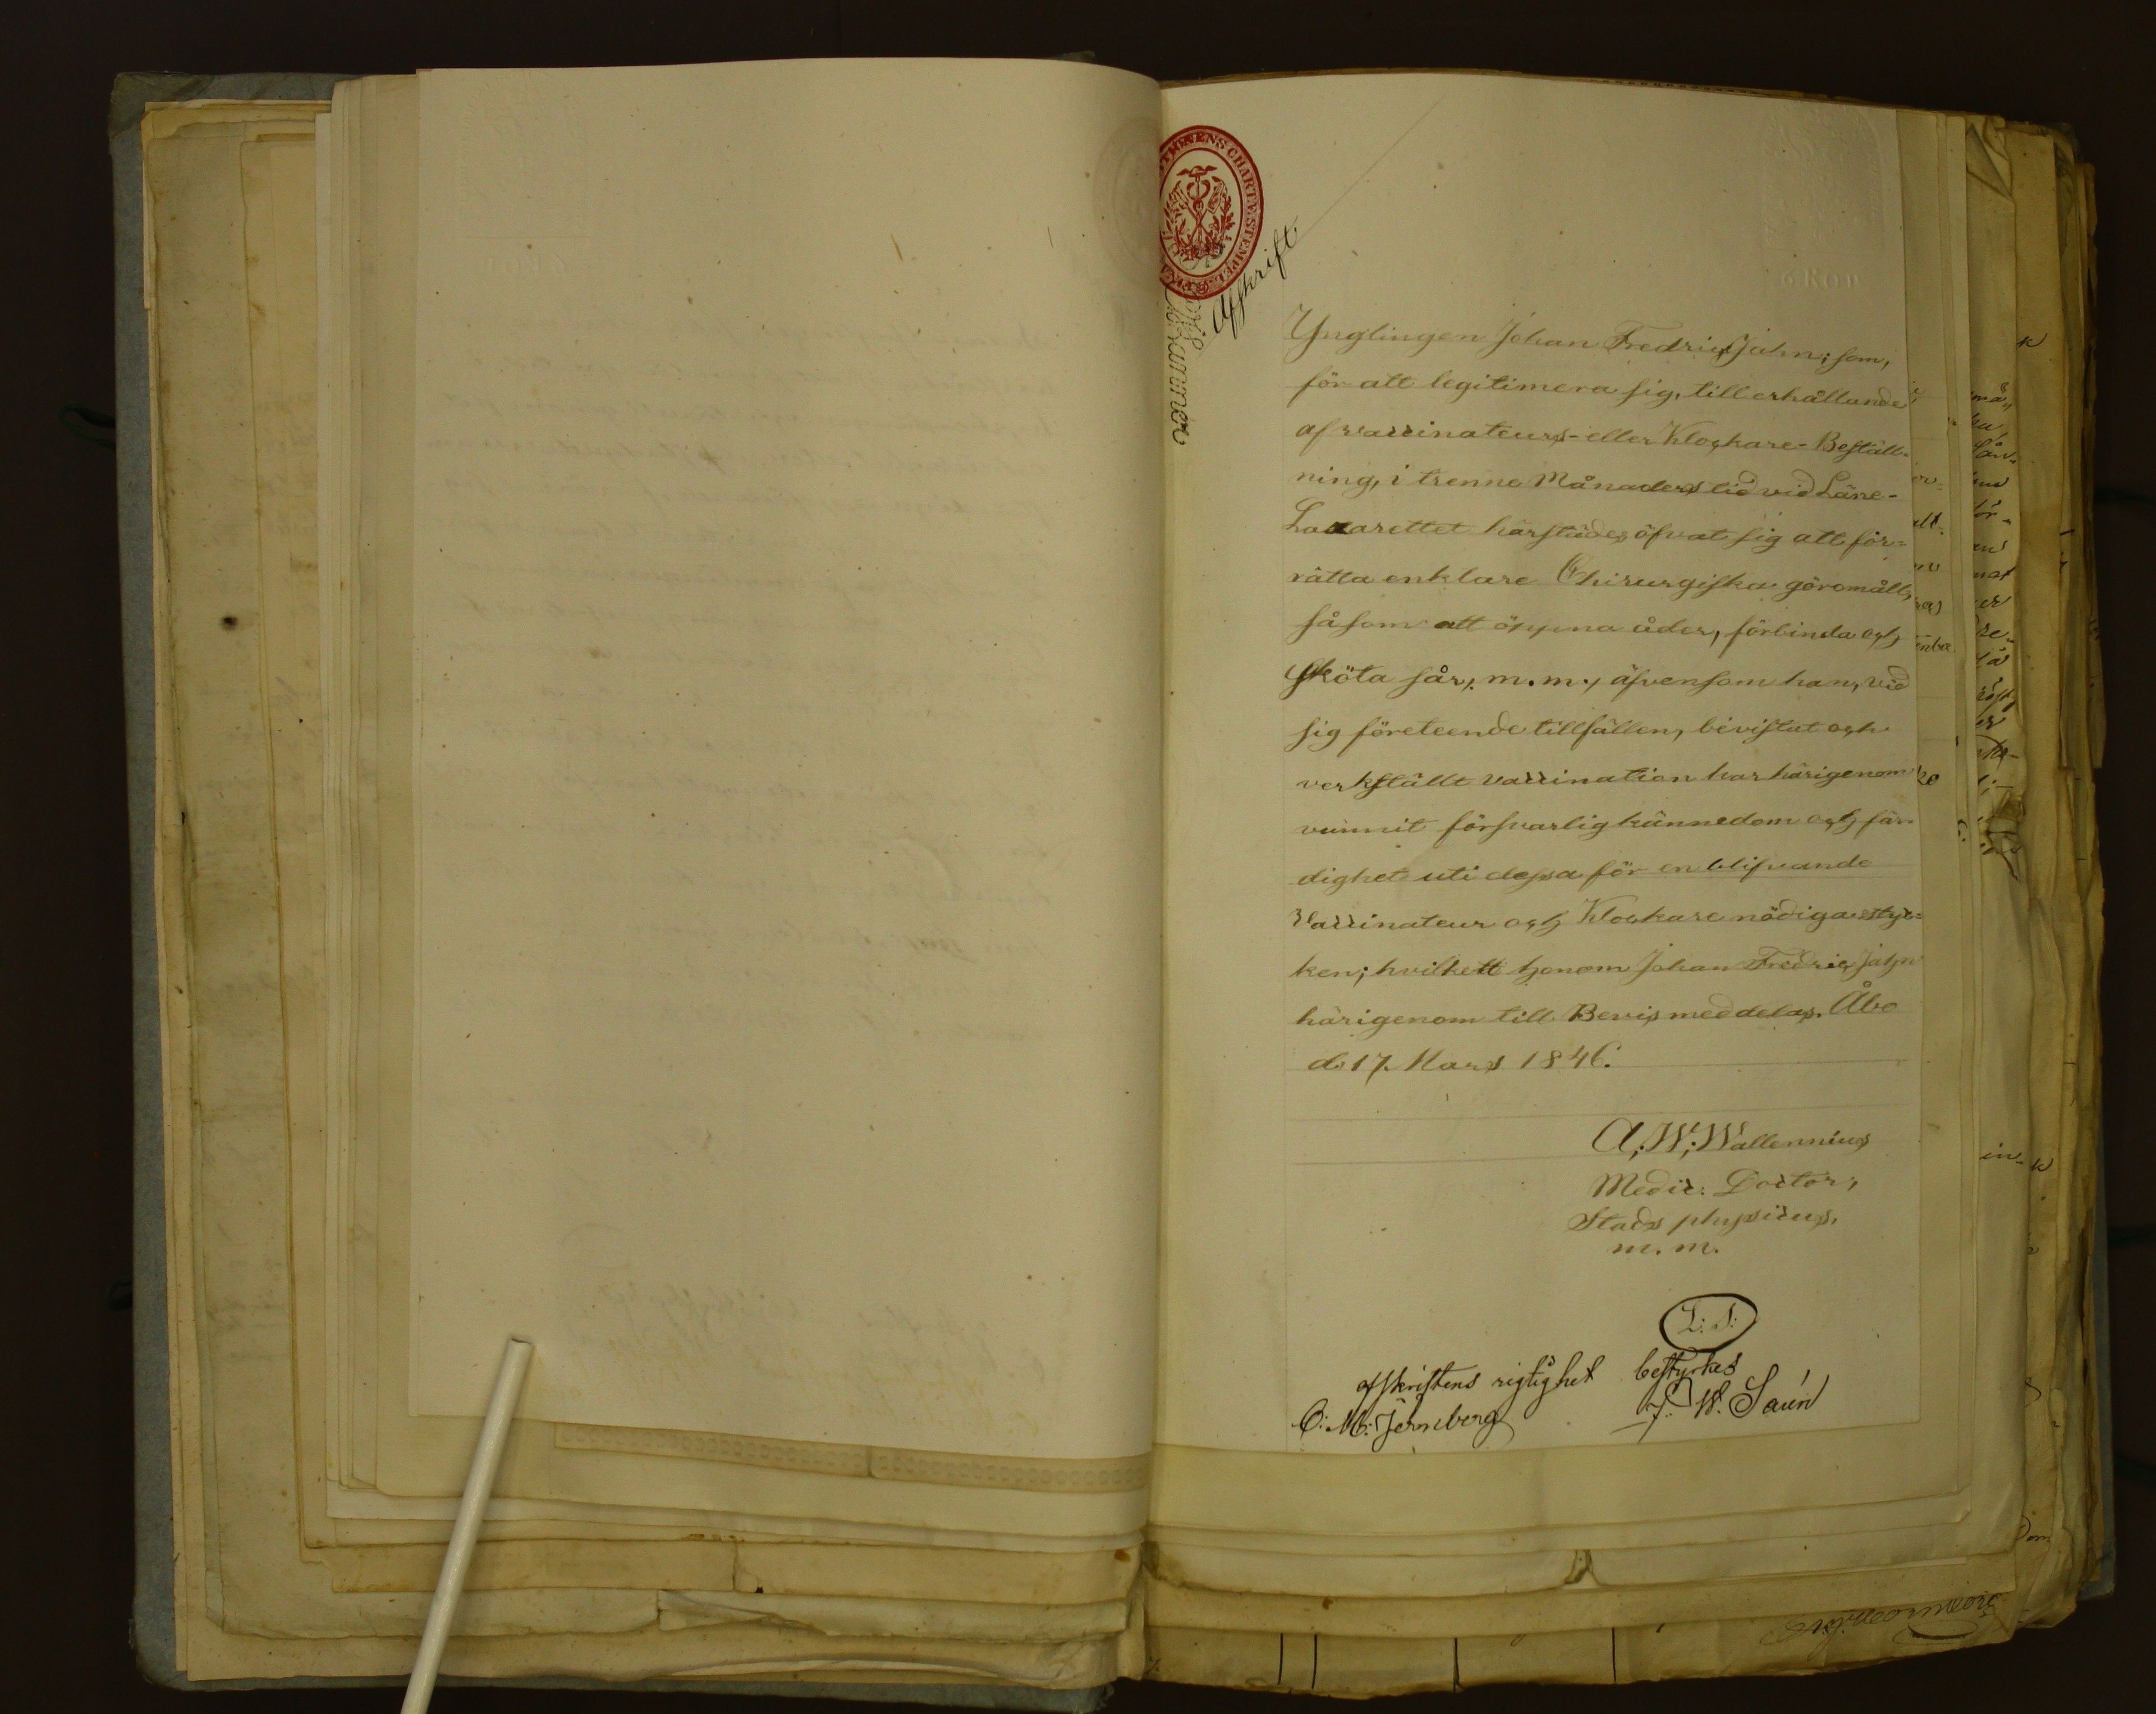 Afskrift
6 Kop
Ynglingen Johan Fredric Jahn; som,
för att legitimera sig, till erhållande
af vaccinateurs- eller Klockare-Beställ-
ning, i trenne Månaders tid vid Läns-
Lazarettet härstädes öfvat sig att för-
rätta enklare Chirurgiska göromåll,
såsom att öppna åder, förbinda och
sköta sår, m. m., äfvensom han, vid
sig företeende tillfällen, bevistat och
verkställt vaccination har härigenom
vunnit försvarlig kännedom och fär-
dighet uti dessa för en blifvande
Vaccinateur och Klockare nödiga styc-
ken; hvilkett honom Johan Fredric Jahn
härigenom till Bevis meddelas. Åbo
d. 17. Mars 1846.
A; W; Wallennius
Medic: Doctor,
Stads physicus,
m. m.
L: S:
afskriftens rigtighet bestyrkes
C: M: Jernberg F: W. Saún